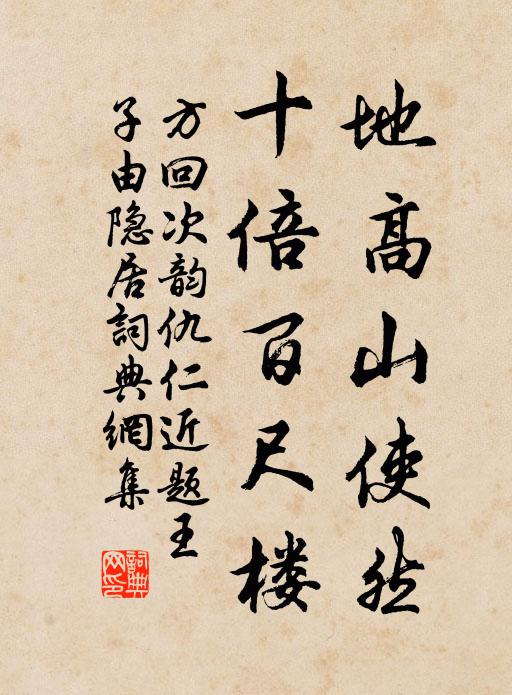 地高山使然
十倍百尺楼
方回次韵仇仁近题王
子由隐居詞典網集
詞典
网印